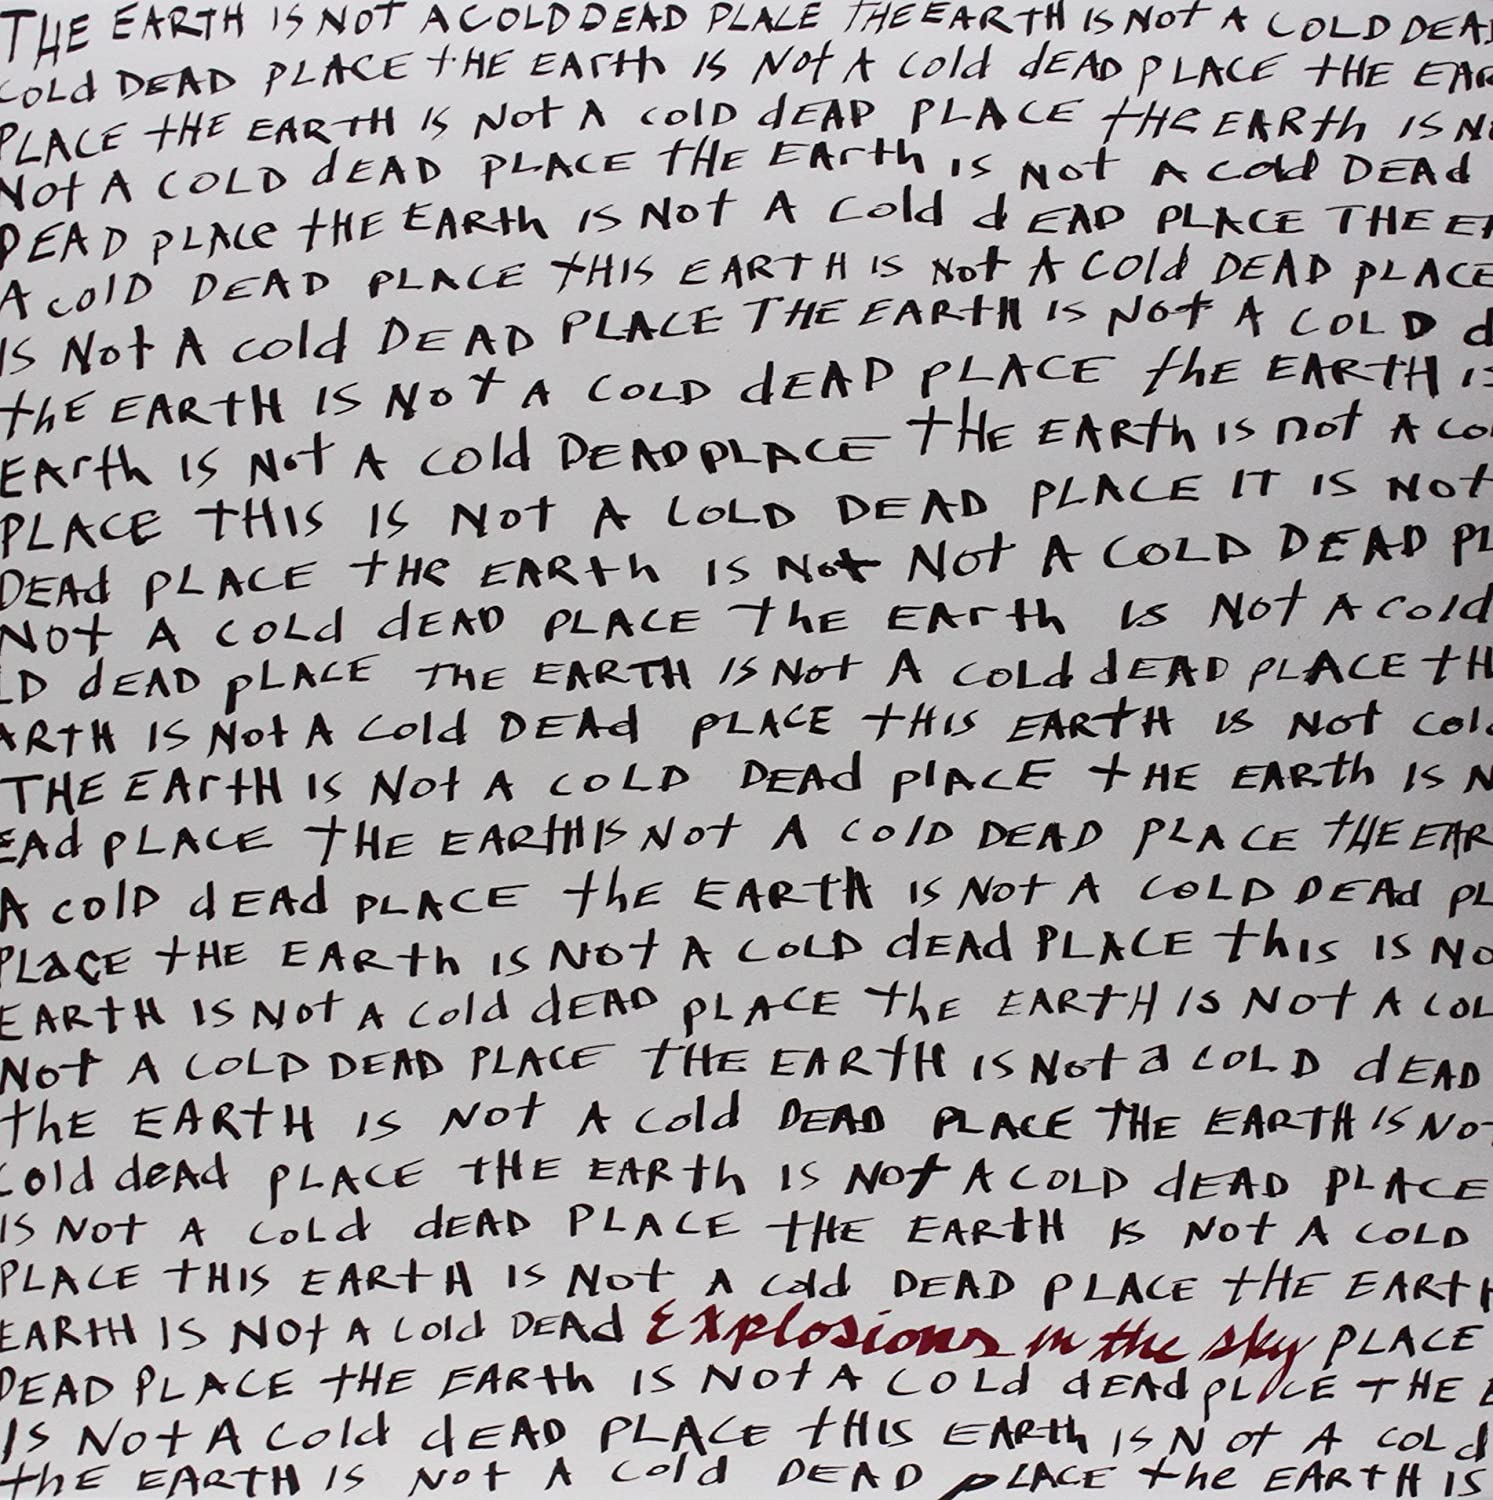 THE EARTH IS NOT A COLD DEAD PLACE THE EARTH IS NOT A COLD DEA
COLd DEAD PLACE tHE EArth IS Not A cold dEAD PLACE tHE EAR
PLACE tHE EARTH IS Not A cold dEAD PLACE tHe EARth IS N
Not A COLD dEAD PLACE tHE EArth is Not A cold DEAd
DEAD pLACe tHE EARth IS Not A cold dEAD PLACE THE E
A colD DEAD PLACE tHIS EARTH IS Not A cold DEAD pLACE
IS Not A cold DEAD PLACE THE EARtH IS Not A COLD d
thE EARtH IS Not A COLD dEAD pLACE thE EARtH is
EArth IS Not A cold DEAD pLACE tHE EARth is not A co
PLACE tHIS IS Not A COLD DEAD PLACE IT IS Not
DEAd pLACE tHe EARth IS Not Not A COLD DEAD PL
Not A COLd dEAD PLACE thE EArth Is Not A cold
LD dEAD pLACE THE EARTH IS Not A COLd dEAD pLACE tH
ARtH IS Not A cold DEAd pLACE tHIS EARtH IS Not col
THE EArtH IS Not A COLD DEAd plACE tHE EARth IS N
EAd pLACE tHE EARtH IS Not A colD DEAD PLACE tHE EAR
A colD dEAd pLACE thE EARtH IS Not A COLD DEAd pL
PLaCE tHE EARth IS Not A COLD dEAd PLACE this IS No
EARtH IS Not A cold dEAD pLACE thE EARtH IS Not A COL
Not A COLD DEAD PLACE tHE EARtH IS Not a COLD dEAD
thE EARtH IS Not A cold DEAD PLACE THE EARTH IS No
cold deAd pLACE tHE EARth IS Not A COLD dEAD PLACE
IS Not A COLd dEAD PLACE tHE EARtH IS Not A COLD
PLACE tHIS EARtH IS Not A cold DEAD PLACE tHE EARt
EARtH IS Not A cold DEAd Explosions in the sky PLACE
DEAD PLACE tHE EARth IS Not A COLd dEAd pLACE tHE E
IS Not A cold dEAD PLACE tHIS EARth IS Not A COLd
thE EARTH IS Not A cold DEAD pLACE the EARtH IS